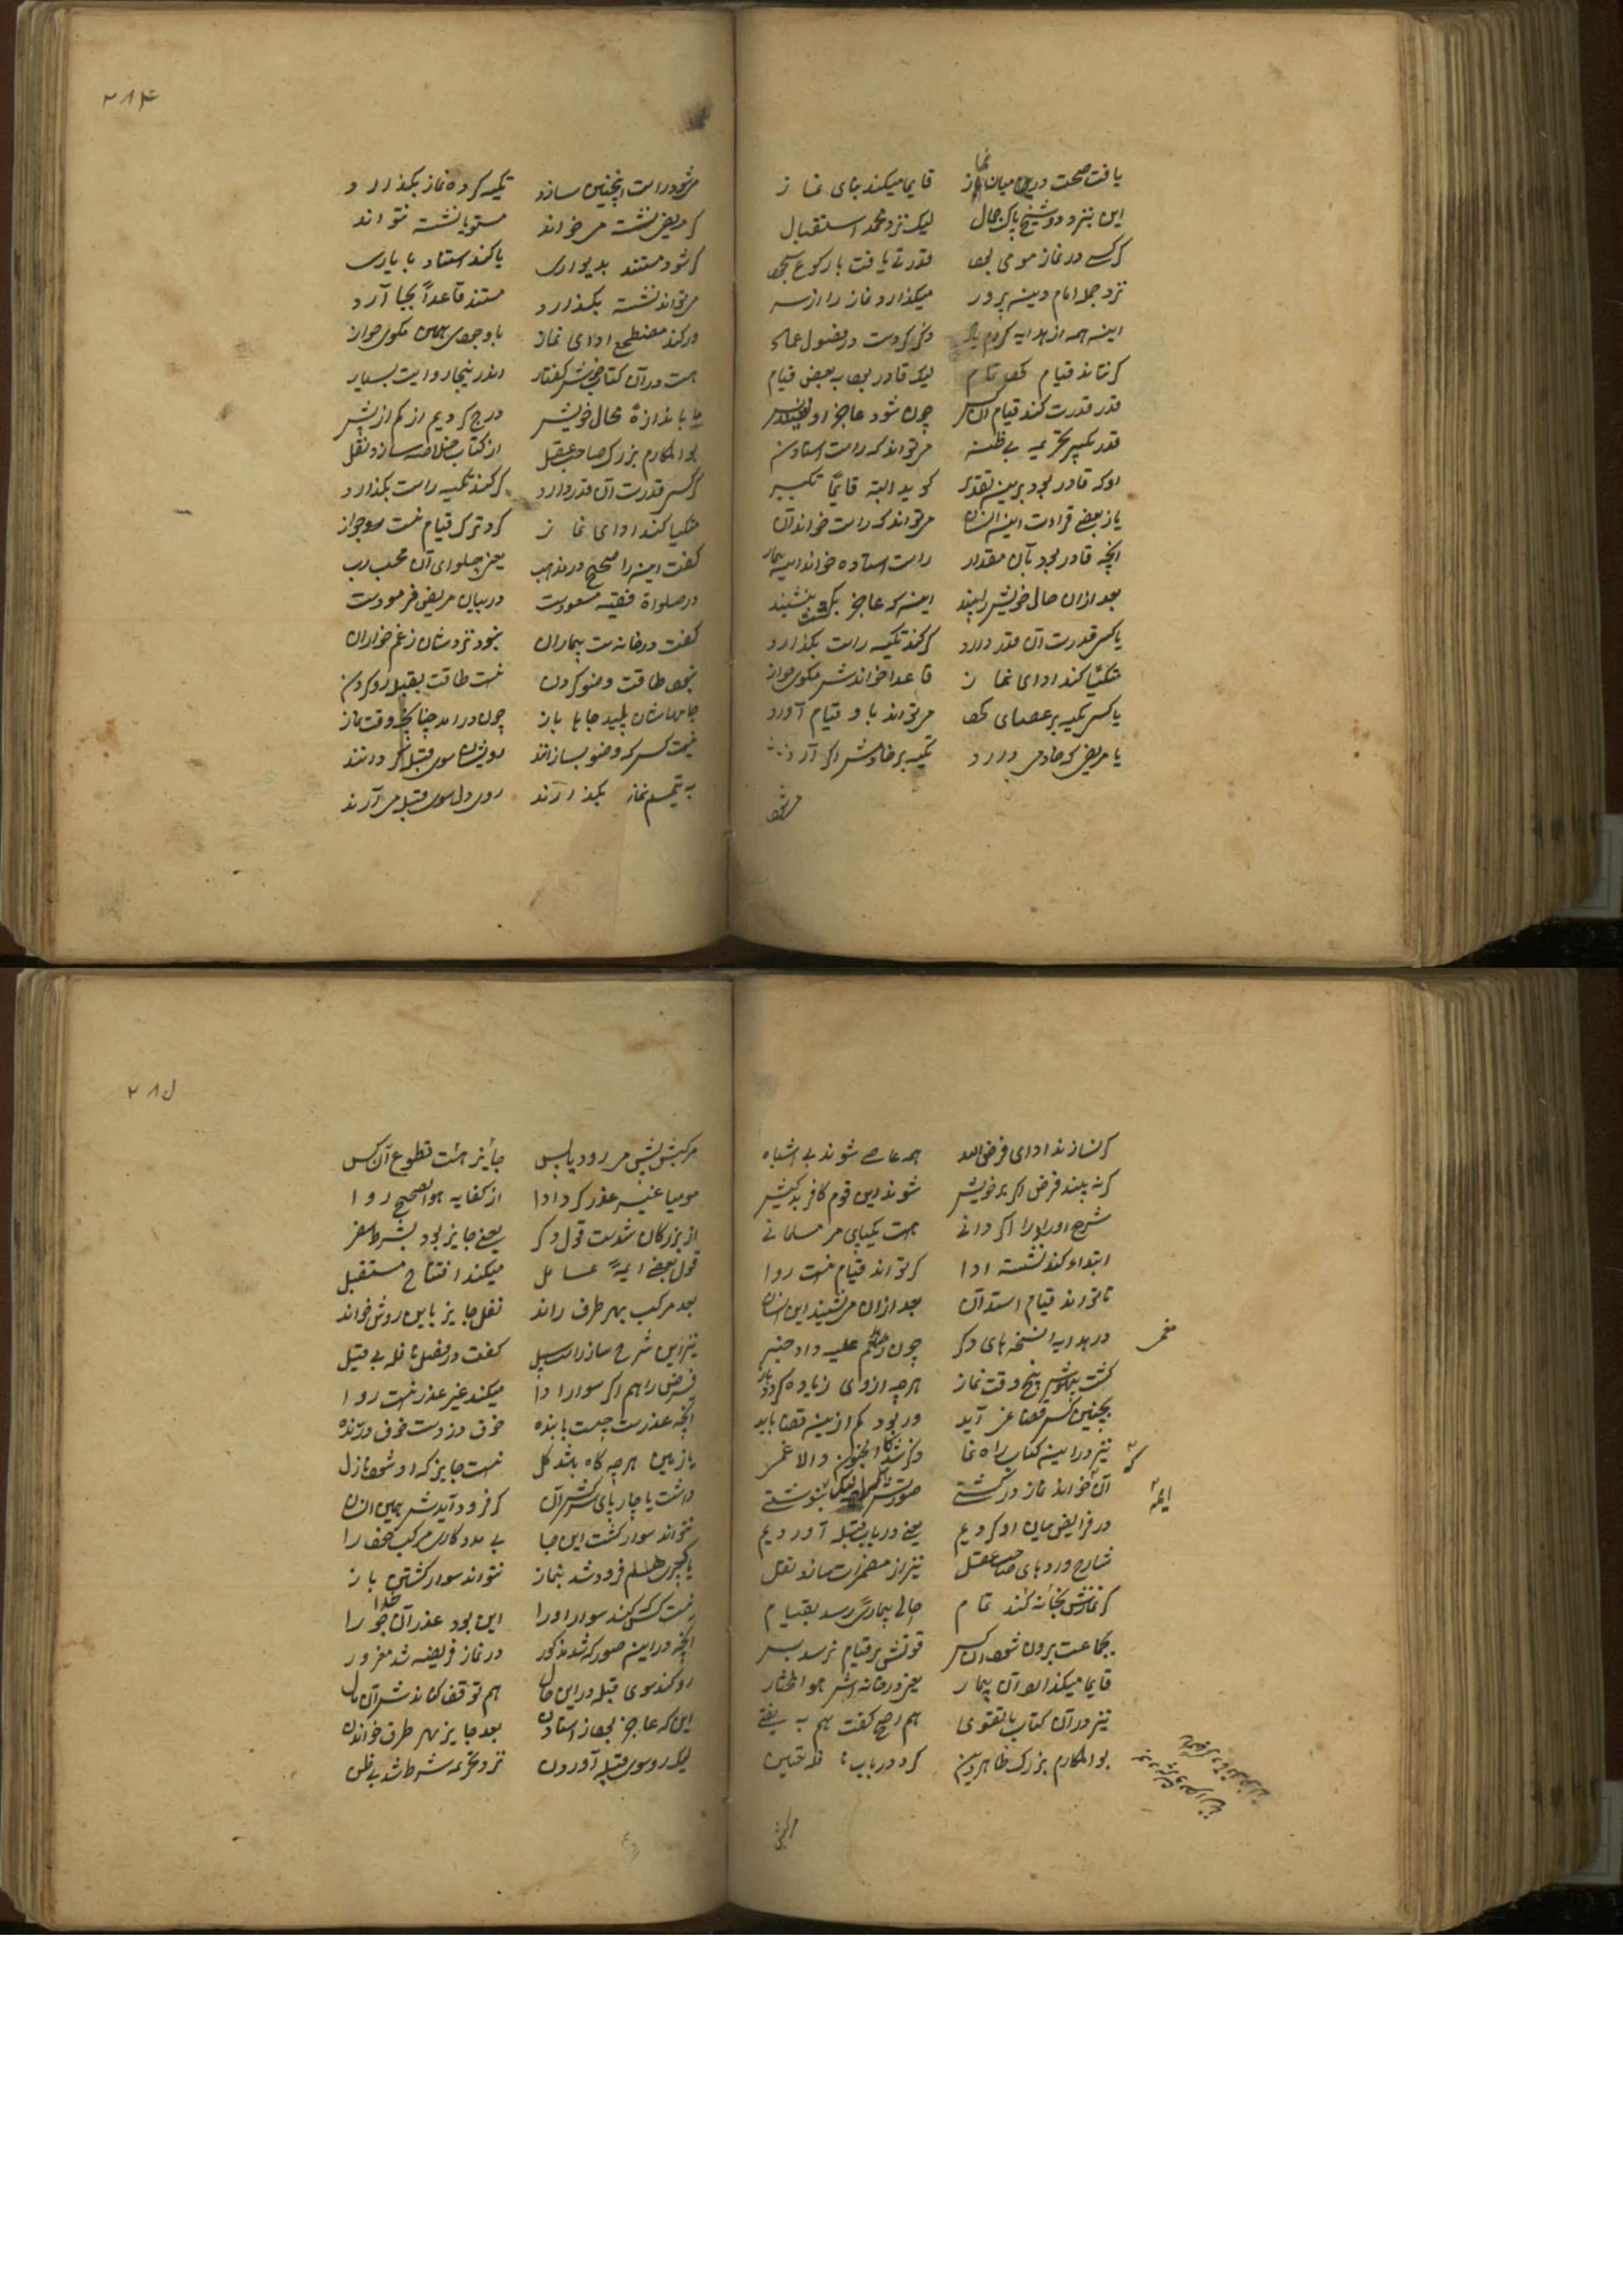 یافت صحت در میان نماز قایما میکند بنای نماز
این بنزد دو شیخ پاک جمال لیک نزد محمد استقبال
کر کسی در نماز مومی بود قدرتی یافت با رکوع سجود
نزد جمله امام دین پرور میکذارد نماز را از سر
این همه از هدایه کردم ذکر کردست در فصول عماد
کر نتاند قیام کرد تمام لیک قادر بود به بعض قیام
قدر قدرت کند قیام آن کس چون شود عاجز او نشیند پس
قدر تکبیر تحریمه بی ظنه می تواند که راست استادن
او که قادر بود برین تقدیر کوید البته قایما تکبیر
یا ز بعضی قراءت این انسان می تواند که راست خواند آن
آنچه قادر بود بآن مقدار راست استاده خواند این بیمار
بعد ازان حال خویش را بیند این که عاجز بکشت بنشیند
یا کسی قدرت آن قدر دارد کر کند تکیه راست بکذارد
متکئا کند ادای نماز قاعدا خواندنش مکوی جواز
یا کسی تکیه بر عصای کند می تواند باو قیام آورد
یا مریضی که خادمی دارد تکیه بر خادمش اکر آرد
می شود
۲۸۴
می شود راست اینچنین سازد تکیه کرده نماز بکذارد
کر مریض نشسته می خواند مستویا نشسته نتواند
کر شود مستند بدیواری یا کند استناد با یاری
می تواند نشسته بکذارد مستند قاعدا بجا آرد
ور کند مضطجع ادای نماز با وجود همین مکوی جواز
هست در آن کتاب خوش کفتار اندر نیجا روایت بسیار
ما باندازهٔ مجال خویش درج کردیم از کم از بیش
بوالمکارم بزرک صاحب عقل از کتاب خلاصه سازد نقل
کر کسی قدرت آن قدر دارد کر کند تکیه راست بکذارد
متکیا کند ادای نماز کرد ترک قیام نیست جواز
کفت این را صحیح در مذهب یعنی حلوای آن محب رب
در صلواة فقیه مسعودست در بیان مریض فرمودست
کفت در خانه ست بیماران نبود نزدشان ز غم خواران
نبود طاقت وضو کردن نیست طاقت بقبله رو کردن
جامهاشان پلید جایها باز چون در آمد چنانچه وقت نماز
نیست کس که وضو بسازاند رویشان سوی قبله کرداند
به تیمم نماز بکذارند روی دل سوی قبله می آرند
کر نسازند ادای فرض الله همه عاصی شوند بی اشتباه
کر نه بینند فرض اکر بر خویش شوند این قوم کافر بدکیش
شرح اوراد را اکر دانی هست یکیابی مر مسلمانی
ابتدا کند نشسته ادا کر تواند قیام نیست روا
تا تواند قیام استد آن بعد ازان می نشیند این انسان
در هدایه نسخه های دکر چون علیه داد خبر
کشت بیهوش پنج وقت نماز هر چه از وی زیاده کردد باز
بچنین کس قضا نمی آید ور بود کم ازین قضا باید
نیز در این کتاب راه نما ذکر شد کالجنون والاغما
آن که خواند نماز در کشتی
در فرایض بیان او کردیم یعنی در باب قبله آوردیم
شارح وردهای صاحب عقل نیز از مضمرات ساند نقل
کر نمازش بخانه کند تمام حال بیماری رسد بقیام
بجماعت برون شود آن کس قوتش بر قیام نرسد بس
قایما میکذارد آن بیمار یعنی در خانه اش هو المختار
نیز در آن کتاب با تقوی هم اصح کفت هم به یفتی
بوالمکارم بزرک ظاهر بین کرد در باب نافله تعیین
مرکبش
۲۸۵
مرکبش پیش می رود یا پس جایز هست تطوع آن کس
مومیا غیر عذر کرد ادا از کفایه هو الصحیح روا
از بزرکان شدست قول دکر یعنی جایز بود بشرط سفر
قول بعضی ایمهٔ عامل میکند افتتاح مستقبل
بعد مرکب بهر طرف راند نفل جایز باین روش خواند
نیز این شرح سازد این سبیل کفت در فصل نافله بی قیل
فرض را هم اکر سوار ادا میکند غیر عذر نیست روا
آنچه عذرست چیست با بنده خوف دزدست خوف درنده
یا زمین هر چه کاه باشد کل نیست جایز که او شود نازل
داشت یا چارپای سرکش آن کر فرود آیدش همین انسان
نتواند سوار کشت این جا بی مددکاری مرکب خود را
فرود شد بنماز نتواند سوار کشتن باز
نیست کس کند سوار او را این بود عذر آن خدا جو را
آنچه در این صور که شد مذکور در نماز فریضه شد معذور
رو کند سوی قبله در این حال هم توقف کناندش آن مال
این که عاجز بود از استادن بعد جایز بهر طرف خواندن
لیک رو سوی قبله آوردن نزد تحریمه شرط شد بی ظن